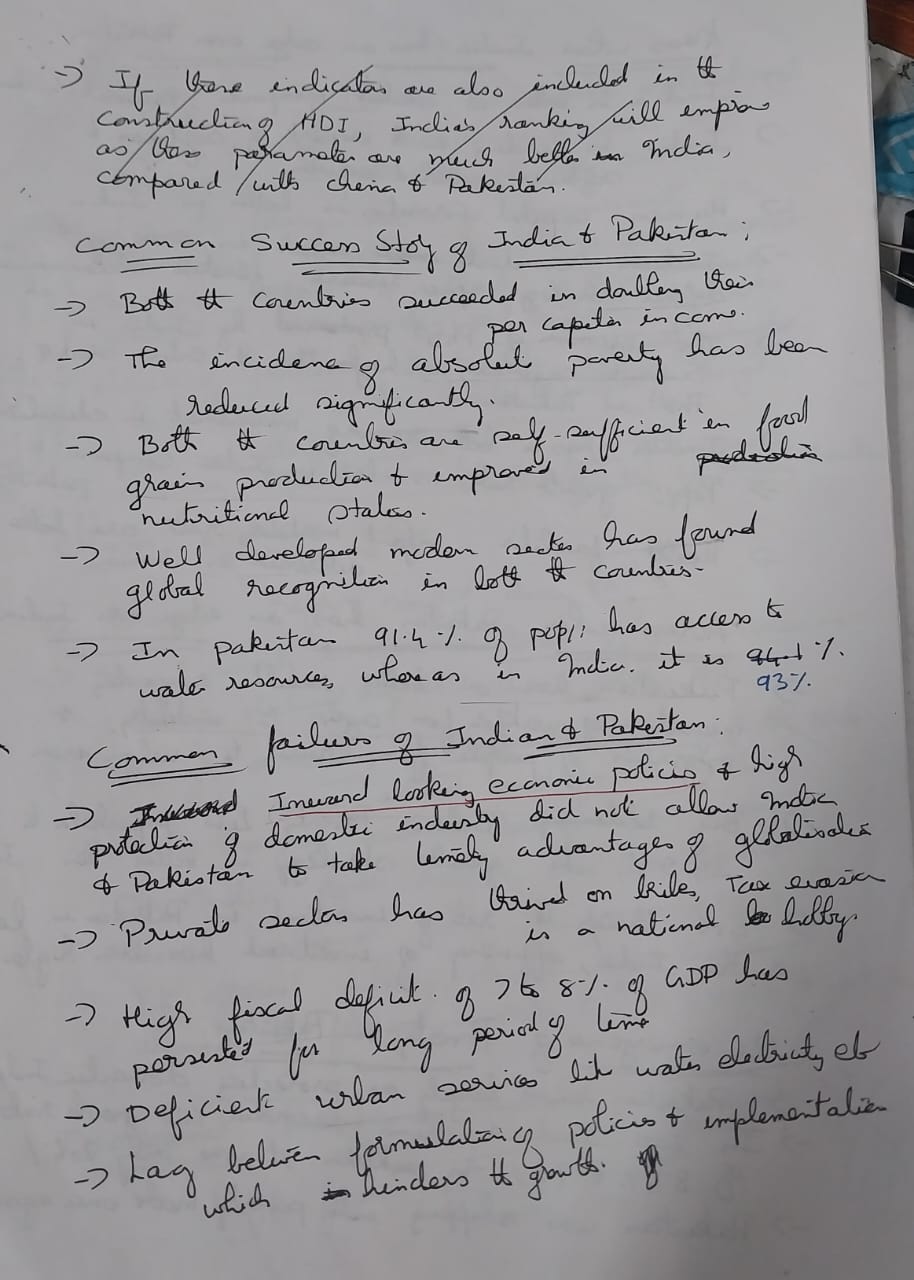 → If these indicators are also included in the
construction of HDI, India's ranking will empro
as these parameters are much better in India,
compared with china & Pakistan.
Common Success Stoy of India & Pakistan;
→ Both the countries succeeded in doulling their
per capita income.
→ The incidence of absolute poverty has been
reduced significantly.
→ Both the countries are self-sufficient in food
grain production & improved in production
nutritional status.
→ Well developed modern sector has found
global recognition in both the countries-
→ In pakistan 91.4 % of popl: has access to
water resources, where as in India. it is 94.1 %.
93%.
Common failures of Indian & Pakistan:
→ Inward Inward looking economic policies & high
protection of domestic industry did not allow India
& Pakistan to take timely advantages of globalisation
→ Private sector has thrived on bribes, Tax evasion
is a national hobby.
→ High fiscal deficit. of 7 to 8%. of GDP has
persested for long period of time
→ Deficient urban services like water electricity etc
→ Lag between formulation of policies & implementation
which in hinders the growth.